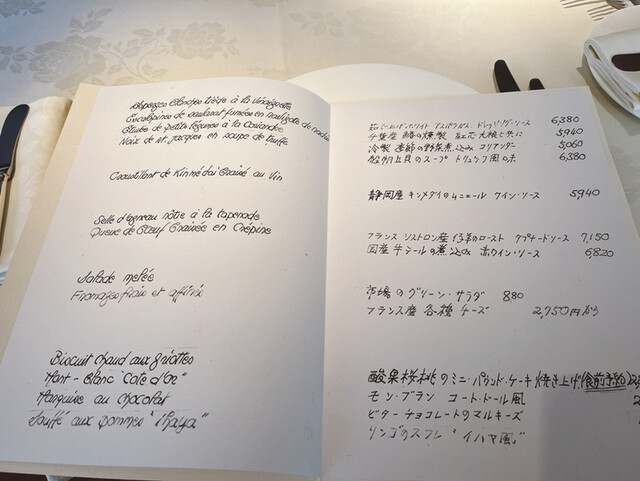 Asperges blanches tiède à la vinaigrette
Escalopines de fumées en de
Étuvée de petits légumes à la Coriandre
Noix de St. Jacques en soupe de truffe
Croustillant de Kinmédaï Braisé au Vin
Selle d'agneau rôtie à la tapenade
Queue de Bœuf Braisée en Crépine
Salade mêlée
Fromages frais et affinés
Biscuit chaud aux griottes
Mont-Blanc "Cote d'Or"
Marquise au chocolat
Soufflé aux pommes "Ihaya"
ホワイト アスパラガス ドレッシング・ソース 6,380
千葉産 の燻製 紅芯大根と共に 5,940
冷製 季節の野菜煮込み コリアンダー 5,060
帆立貝のスープ トリュフ風味 6,380
静岡産 キンメダイのムニエール ワイン・ソース 5,940
フランス シストロン産 仔羊のロースト タプナードソース 7,150
国産 牛テールの煮込み 赤ワイン・ソース 6,820
市場のグリーン・サラダ 880
フランス産 各種チーズ 2,750円から
酸果桜桃のミニ・パウンド・ケーキ焼き上げ(食前予約)
モン・ブラン コート・ドール風
ビターチョコレートのマルキーズ
リンゴのスフレ "イハヤ風"